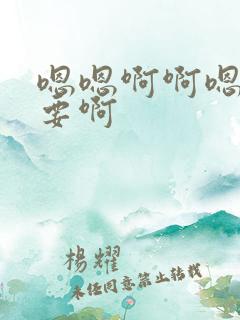 嗯嗯啊啊嗯
要啊
楊耀
未经同意禁止转载